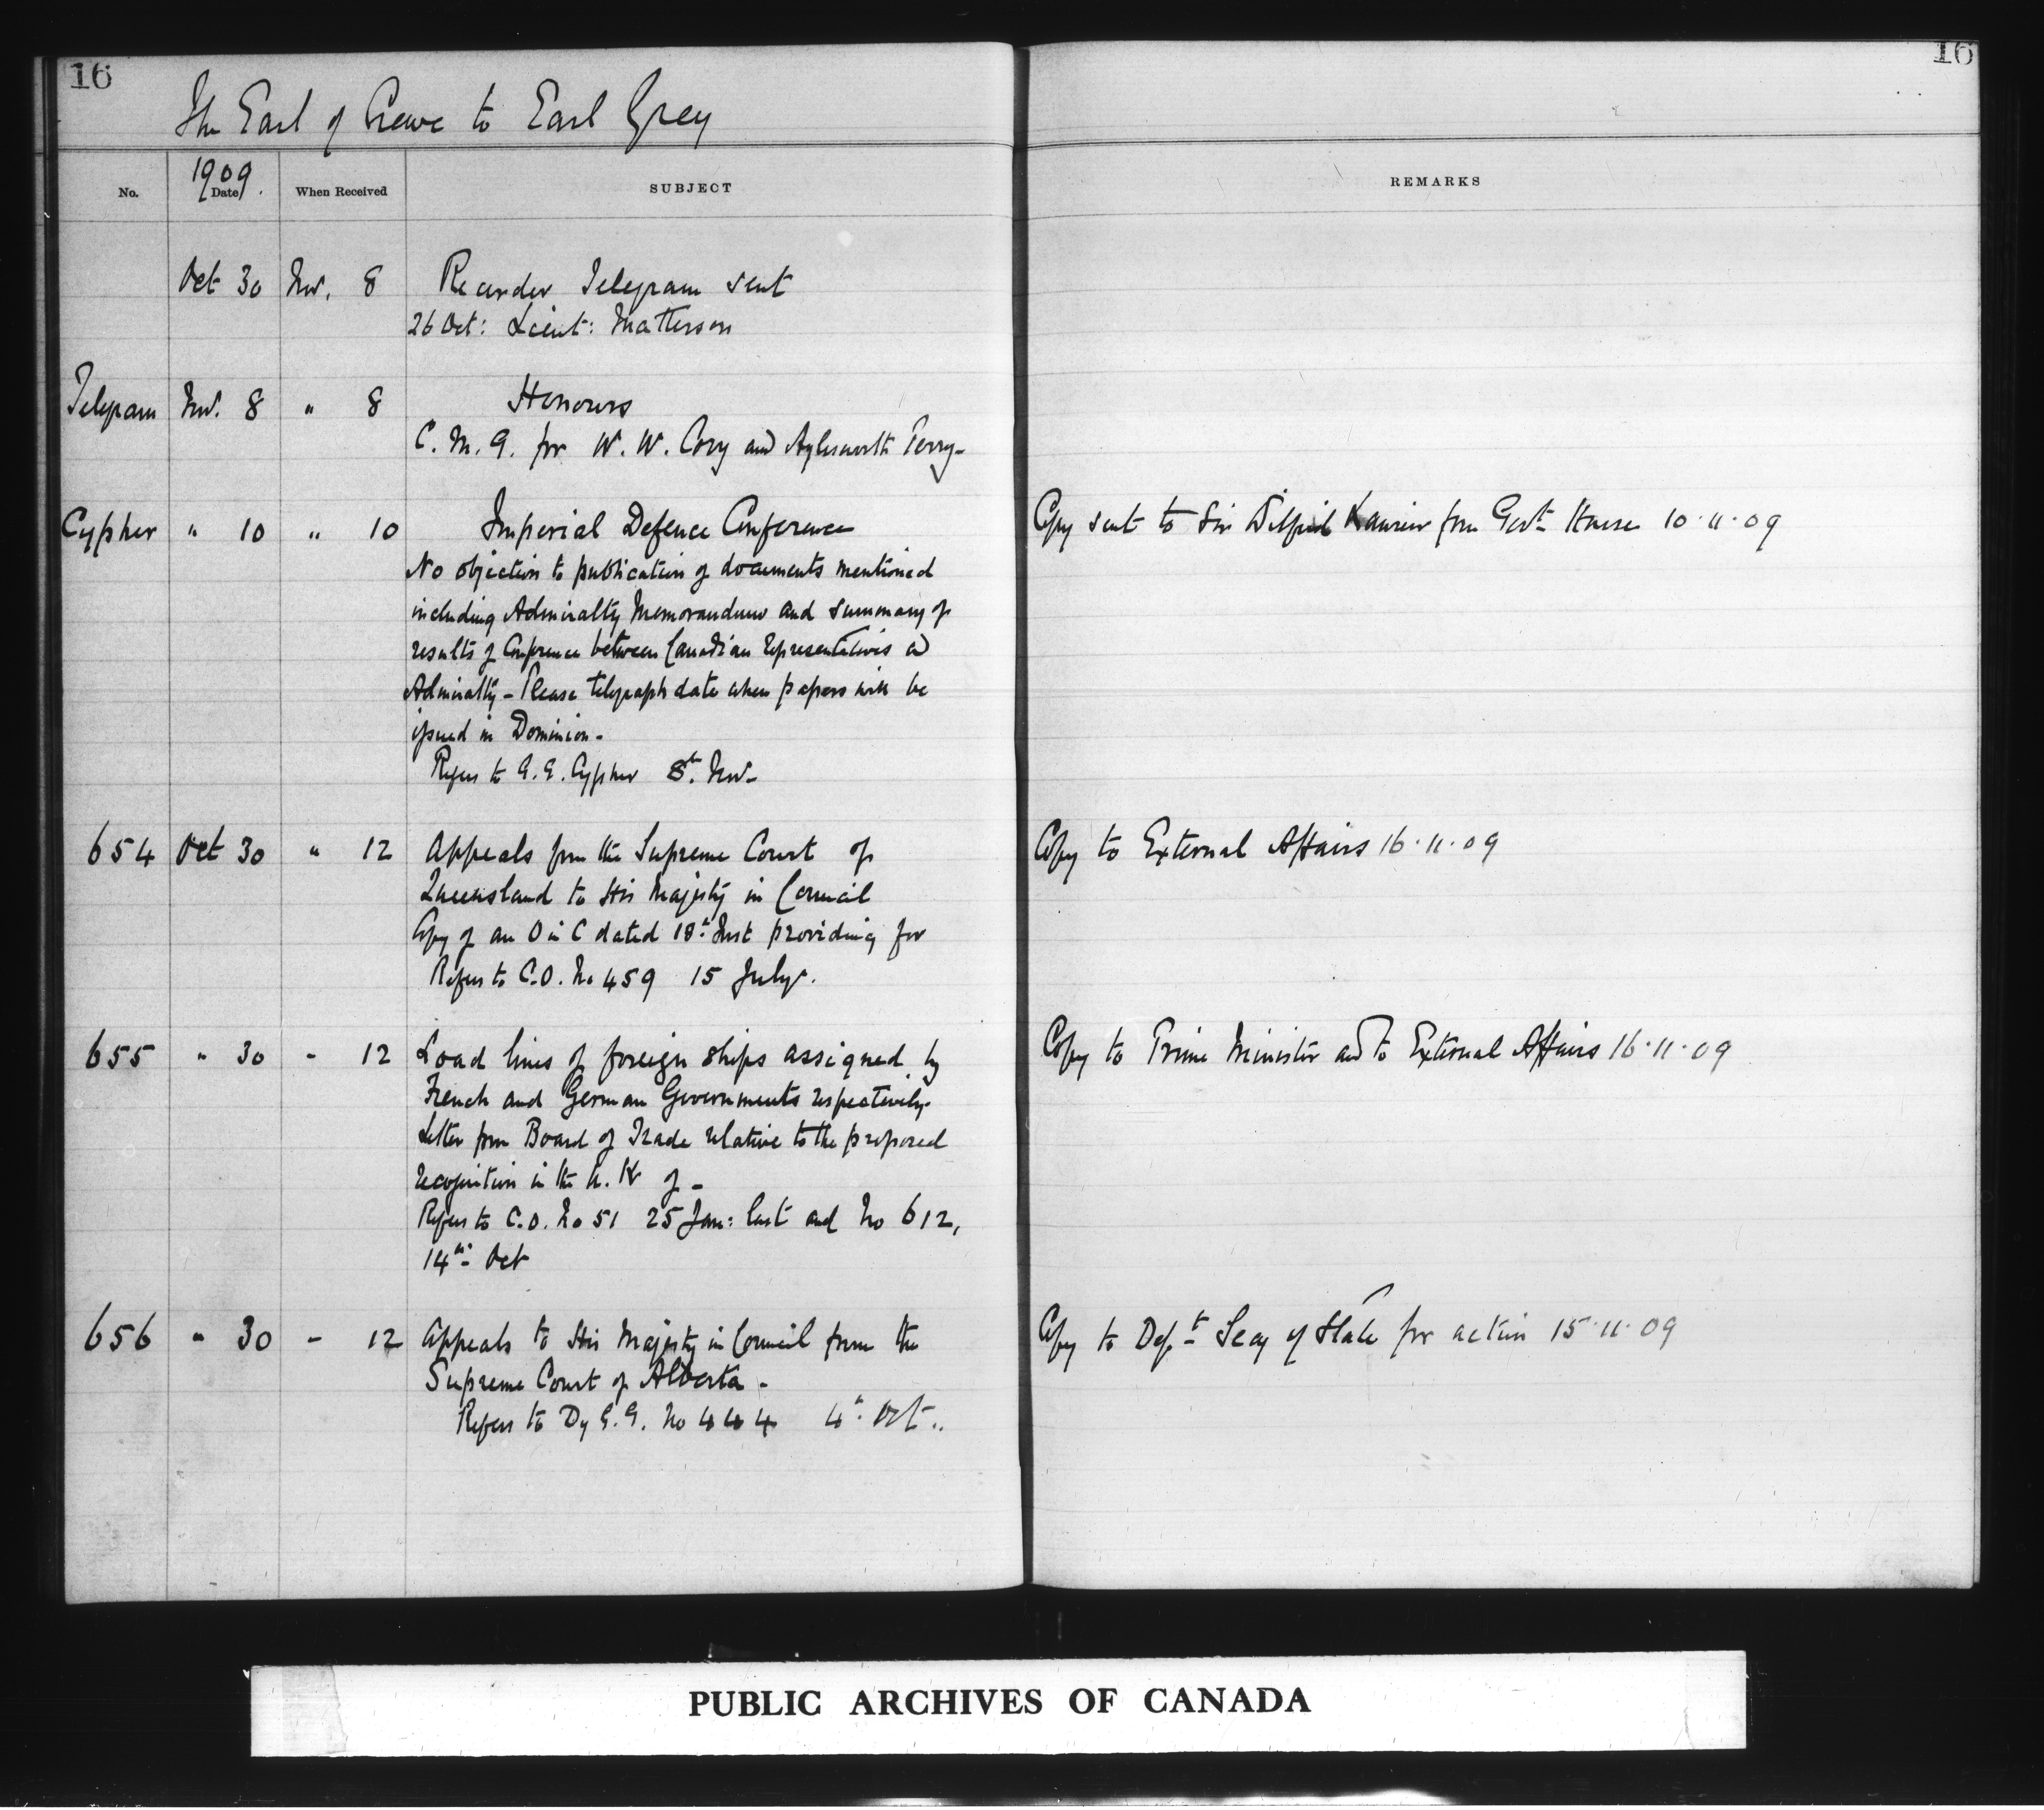 16
16
The Earl of Crewe to Earl Grey
No.
1909.
Date
When Received
SUBJECT
REMARKS
Oct 30 Nov. 8 Recorder Telegram sent
26 Oct: Lieut: Matterson
Telegram Nov. 8 " 8 Honours
C. M. G. for W. W. Cory and Aylesworth Perry-
Cypher " 10 " 10 Imperial Defence Conference Copy sent to Sir Wilfrid Laurier from Govt House 10.11.09
No objection to publication of documents mentioned
including Admiralty Memorandum and summary of
results of Conference between Canadian Representatives and
Admiralty - Please telegraph date when papers will be
issued in Dominion -
Refers to G. G. Cypher 8th Nov-
654 Oct 30 " 12 Appeals from the Supreme Court of Copy to External Affairs 16.11.09
Queensland to His Majesty in Council
Copy of an O in C dated 18th Inst providing for
Refers to C.O. No 459 15 July.
655 " 30 - 12 Load lines of foreign ships assigned by Copy to Prime Minister and to External Affairs 16.11.09
French and German Governments respectively-
Letter from Board of Trade relative to the proposed
recognition in the U. K of -
Refers to C.O. No 51 25 Jan: last and No 612,
14th Oct
656 " 30 - 12 Appeals to His Majesty in Council from the Copy to Dept Secy of State for action 15.11.09
Supreme Court of Alberta -
Refers to Dy G. G. No 444 4th Oct..
PUBLIC ARCHIVES OF CANADA